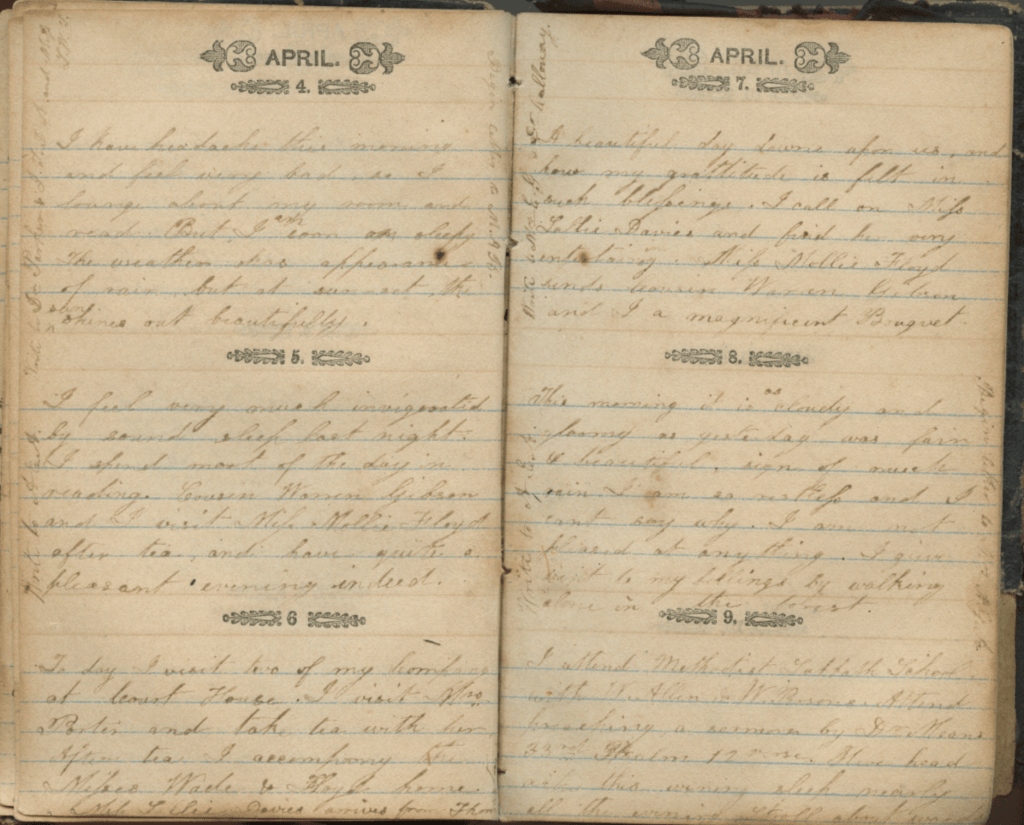 APRIL.
4.
I have headache this morning
and feel very bad, as I
lounge about my room and
read. But I am soon asleep
The weather has appearance
of rain but at sun-set the
shines out beautifully.
5.
I feel very much invigorated
by sound sleep last night.
I spend most of the day in
reading. Cousin Warren Gibson
and I visit Miss Mollie Floyd
after tea, and have quite a
pleasant evening indeed.
6
To day I visit two of my company
at Court House. I visit Mrs.
Porter and take tea with her
After tea I accompany the
Misses Wade & Floyd home.
Miss Lollie Davies arrives from
APRIL.
7.
A beautiful day dawns upon us, and
how my gratitude is felt in
such blessings. I call on Miss
Lollie Davies and find her very
entertaining. Miss Mollie Floyd
sends cousin Warren Gibson
and I a magnificent Bouquet.
8.
This morning it is as cloudy and
gloomy as yesterday was fair
& beautiful, sign of much
rain. I am so restless and I
cant say why. I am not
pleased at any thing. I give
vent to my feelings by walking
alone in the forest.
9.
I attend Methodist Sabbath School
with W. Allen & W. Attend
preaching, a sermon by Dr Means
33rd Psalm 12 Have head
ache this evening sleep nearly
all the evening stroll about